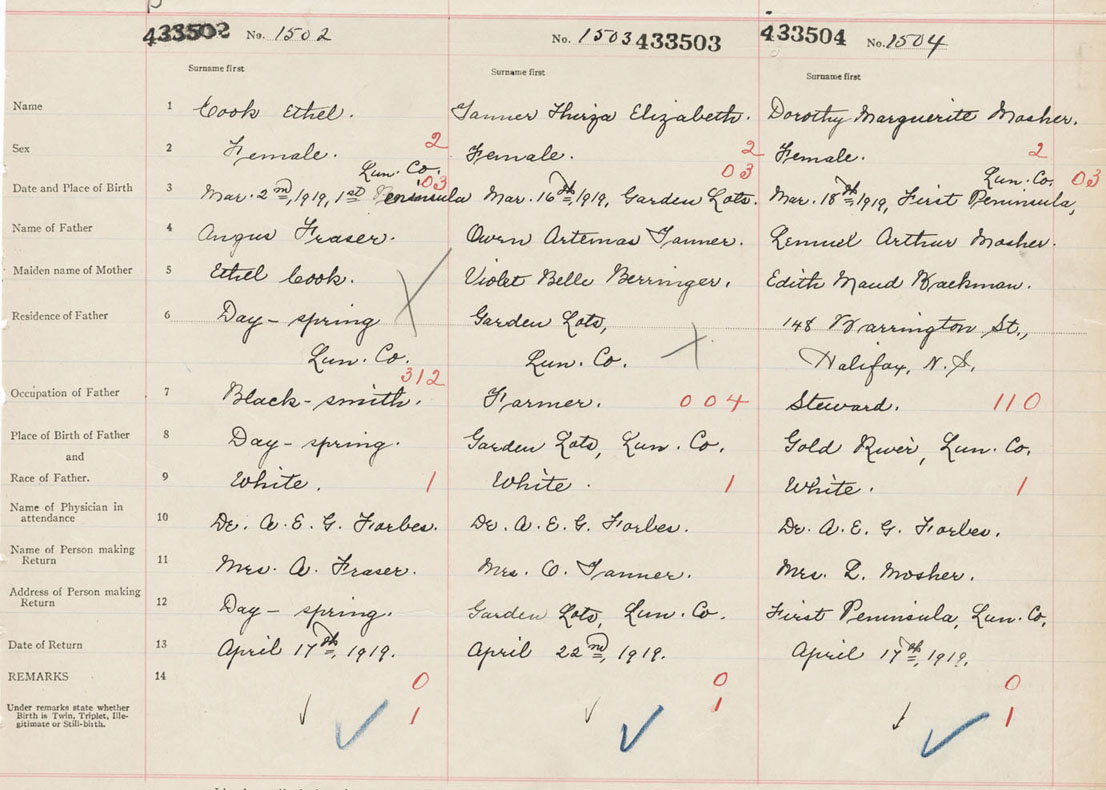 433502 No. 1502 No. 1503 433503 433504 No. 1504
Surname first Surname first Surname first
Name 1 Cook Ethel. Tanner Thirza Elizabeth. Dorothy Marguerite Mosher.
Sex 2 Female. 2 Female. 2 Female. 2
Lun. Co. 03 03 Lun. Co. 03
Date and Place of Birth 3 Mar. 2nd, 1919, 1st Peninsula Mar. 16th, 1919, Garden Lots. Mar. 18th, 1919, First Peninsula,
Name of Father 4 Angus Fraser. Owen Artemas Tanner. Lemuel Arthur Mosher.
Maiden name of Mother 5 Ethel Cook. Violet Belle Berringer. Edith Maud Rackman.
Residence of Father 6 Day-spring Garden Lots, 148 Barrington St.,
Lun. Co. Lun. Co. Halifax, N.S.
312
Occupation of Father 7 Black-smith. Farmer. 004 Steward. 110
Place of Birth of Father 8 Day-spring. Garden Lots, Lun. Co. Gold River, Lun. Co.
and
Race of Father. 9 White. 1 White. 1 White. 1
Name of Physician in
attendance 10 Dr. A. E. G. Forbes. Dr. A. E. G. Forbes. Dr. A. E. G. Forbes.
Name of Person making
Return 11 Mrs. A. Fraser. Mrs. O. Tanner. Mrs. L. Mosher.
Address of Person making
Return 12 Day-spring. Garden Lots, Lun. Co. First Peninsula, Lun. Co.
Date of Return 13 April 17th, 1919. April 22nd, 1919. April 17th, 1919.
REMARKS 14 0 0 0
Under remarks state whether
Birth is Twin, Triplet, Ille-
gitimate or Still-birth. 1 1 1